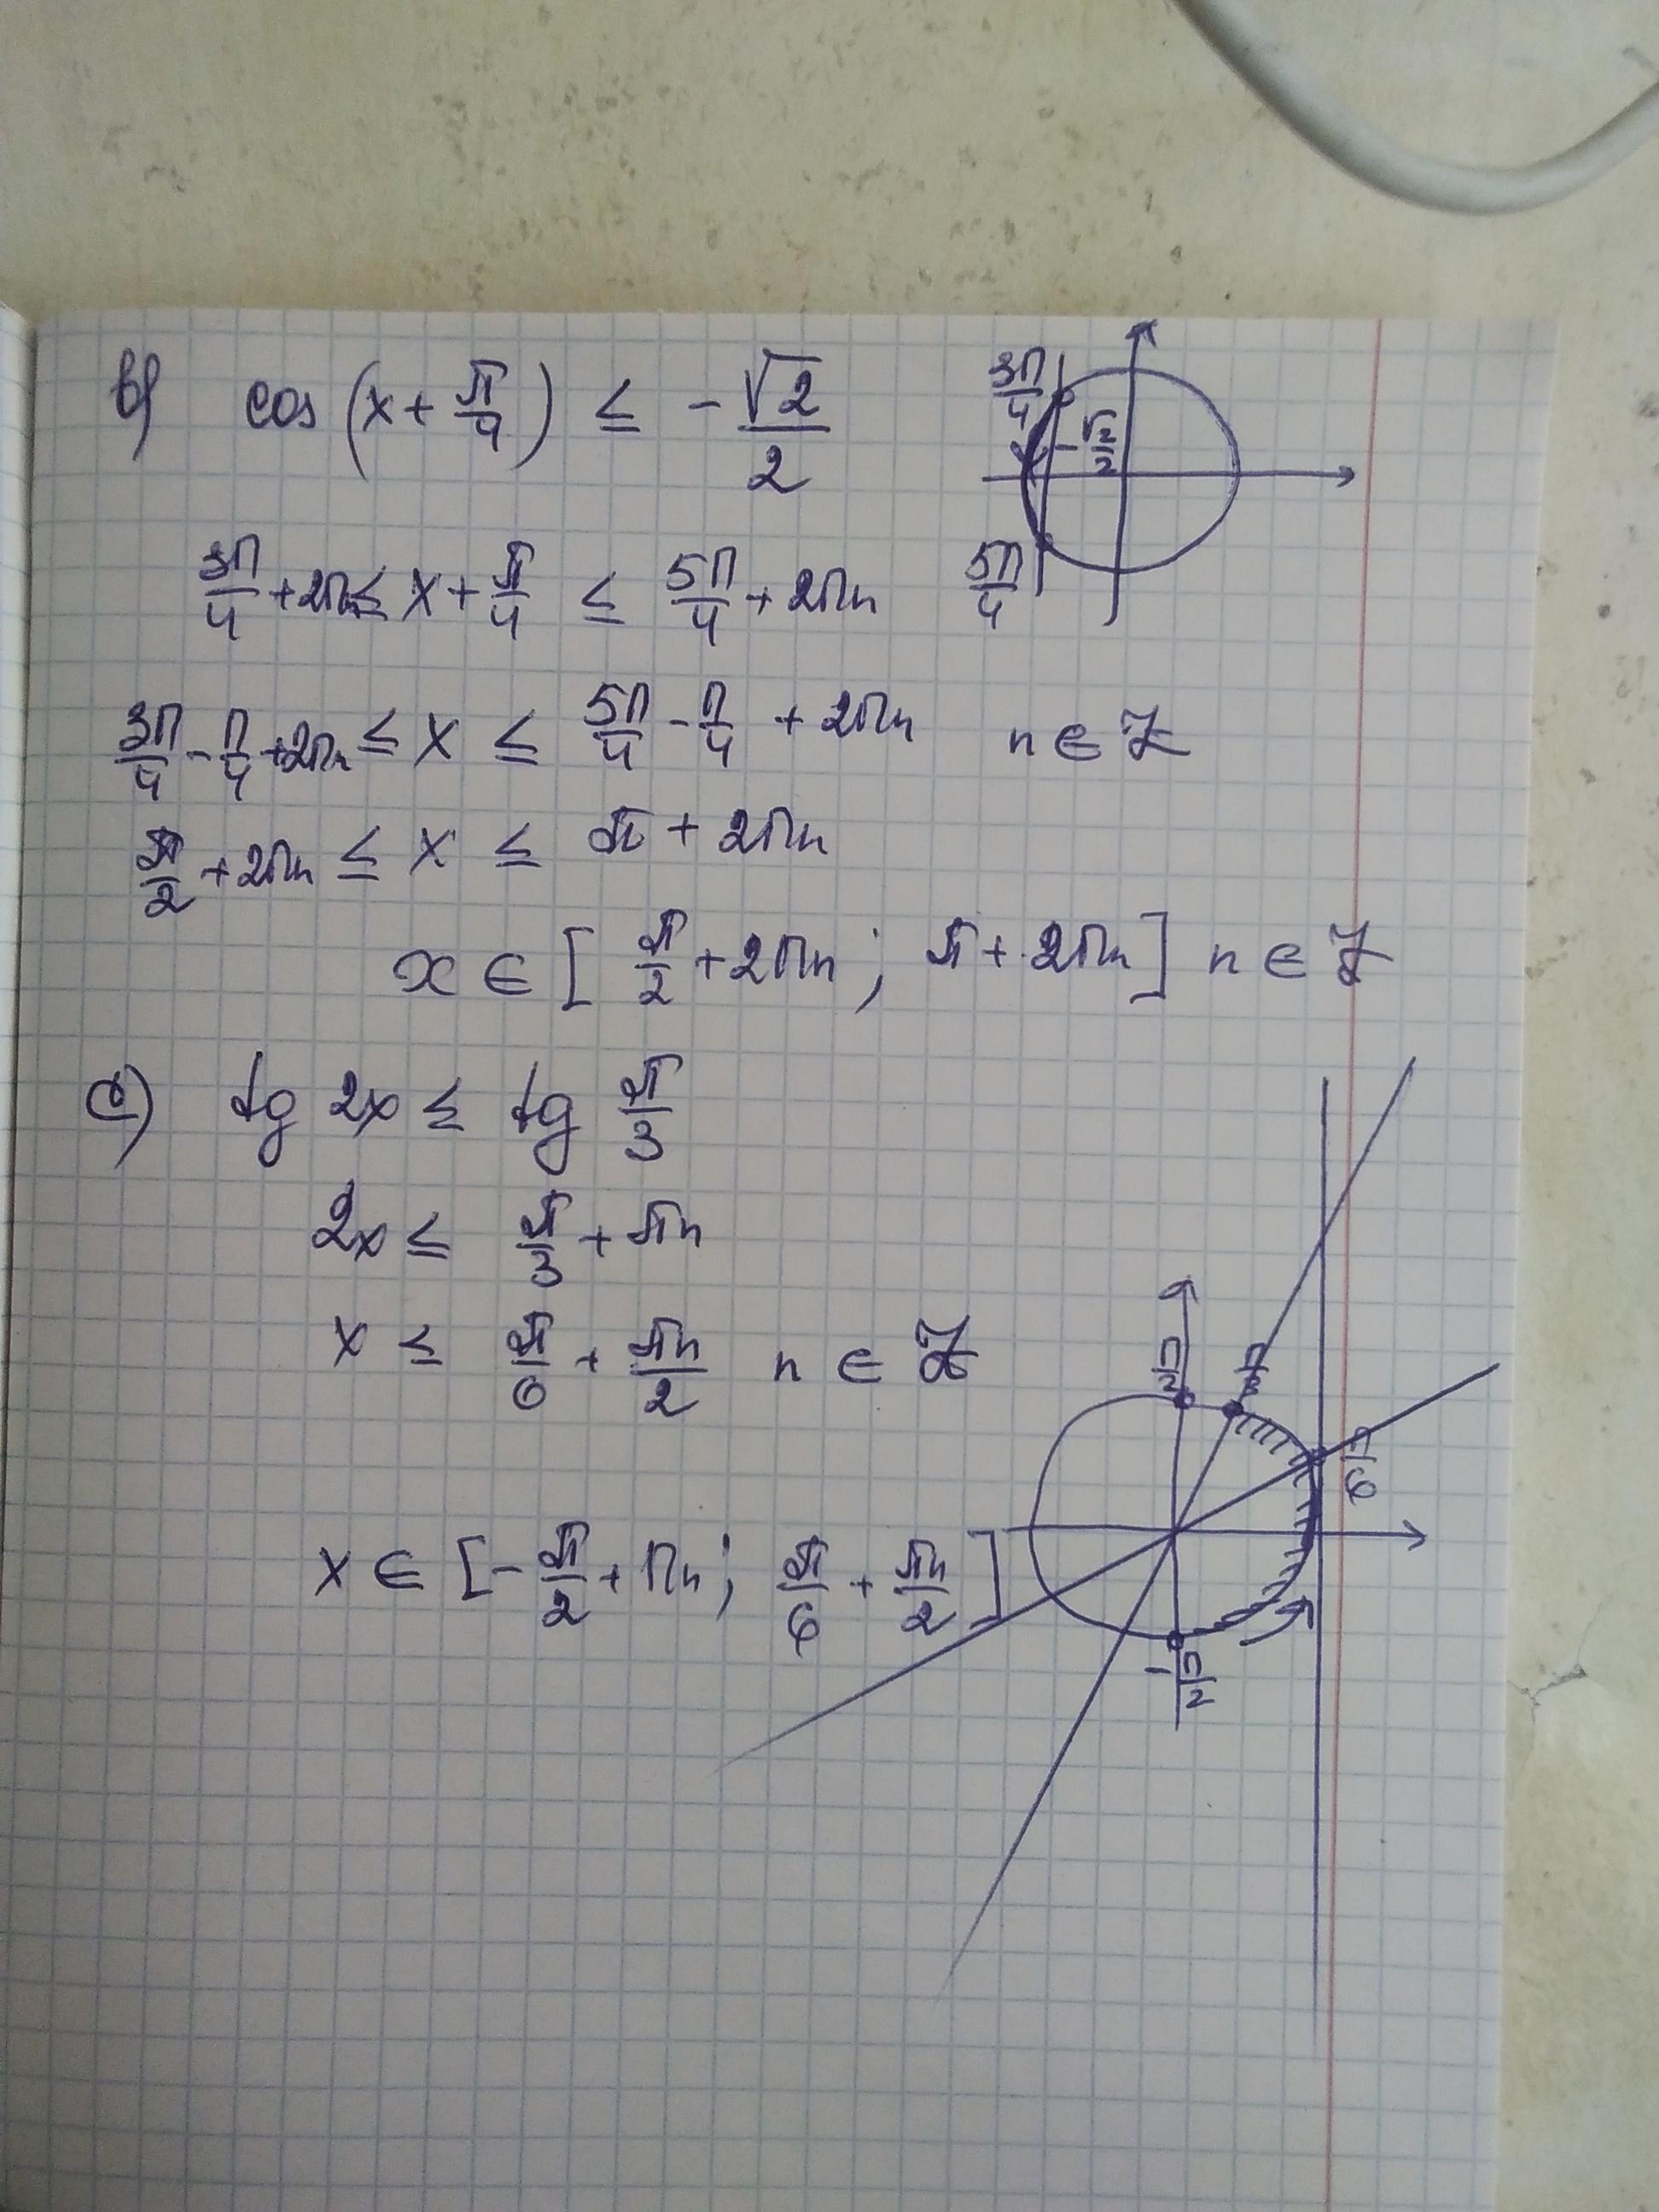 в) cos (x + π/4) ≤ - √2/2
3π/4 - √2/2 5π/4
3π/4 + 2πn ≤ x + π/4 ≤ 5π/4 + 2πn
3π/4 - π/4 + 2πn ≤ x ≤ 5π/4 - π/4 + 2πn n ∈ Z
π/2 + 2πn ≤ x ≤ π + 2πn
x ∈ [ π/2 + 2πn ; π + 2πn ] n ∈ Z
с) tg 2x ≤ tg π/3
2x ≤ π/3 + πn
x ≤ π/6 + πn/2 n ∈ Z
π/2 π/3 π/6
x ∈ [ - π/2 + πn ; π/6 + πn/2 ]
- π/2